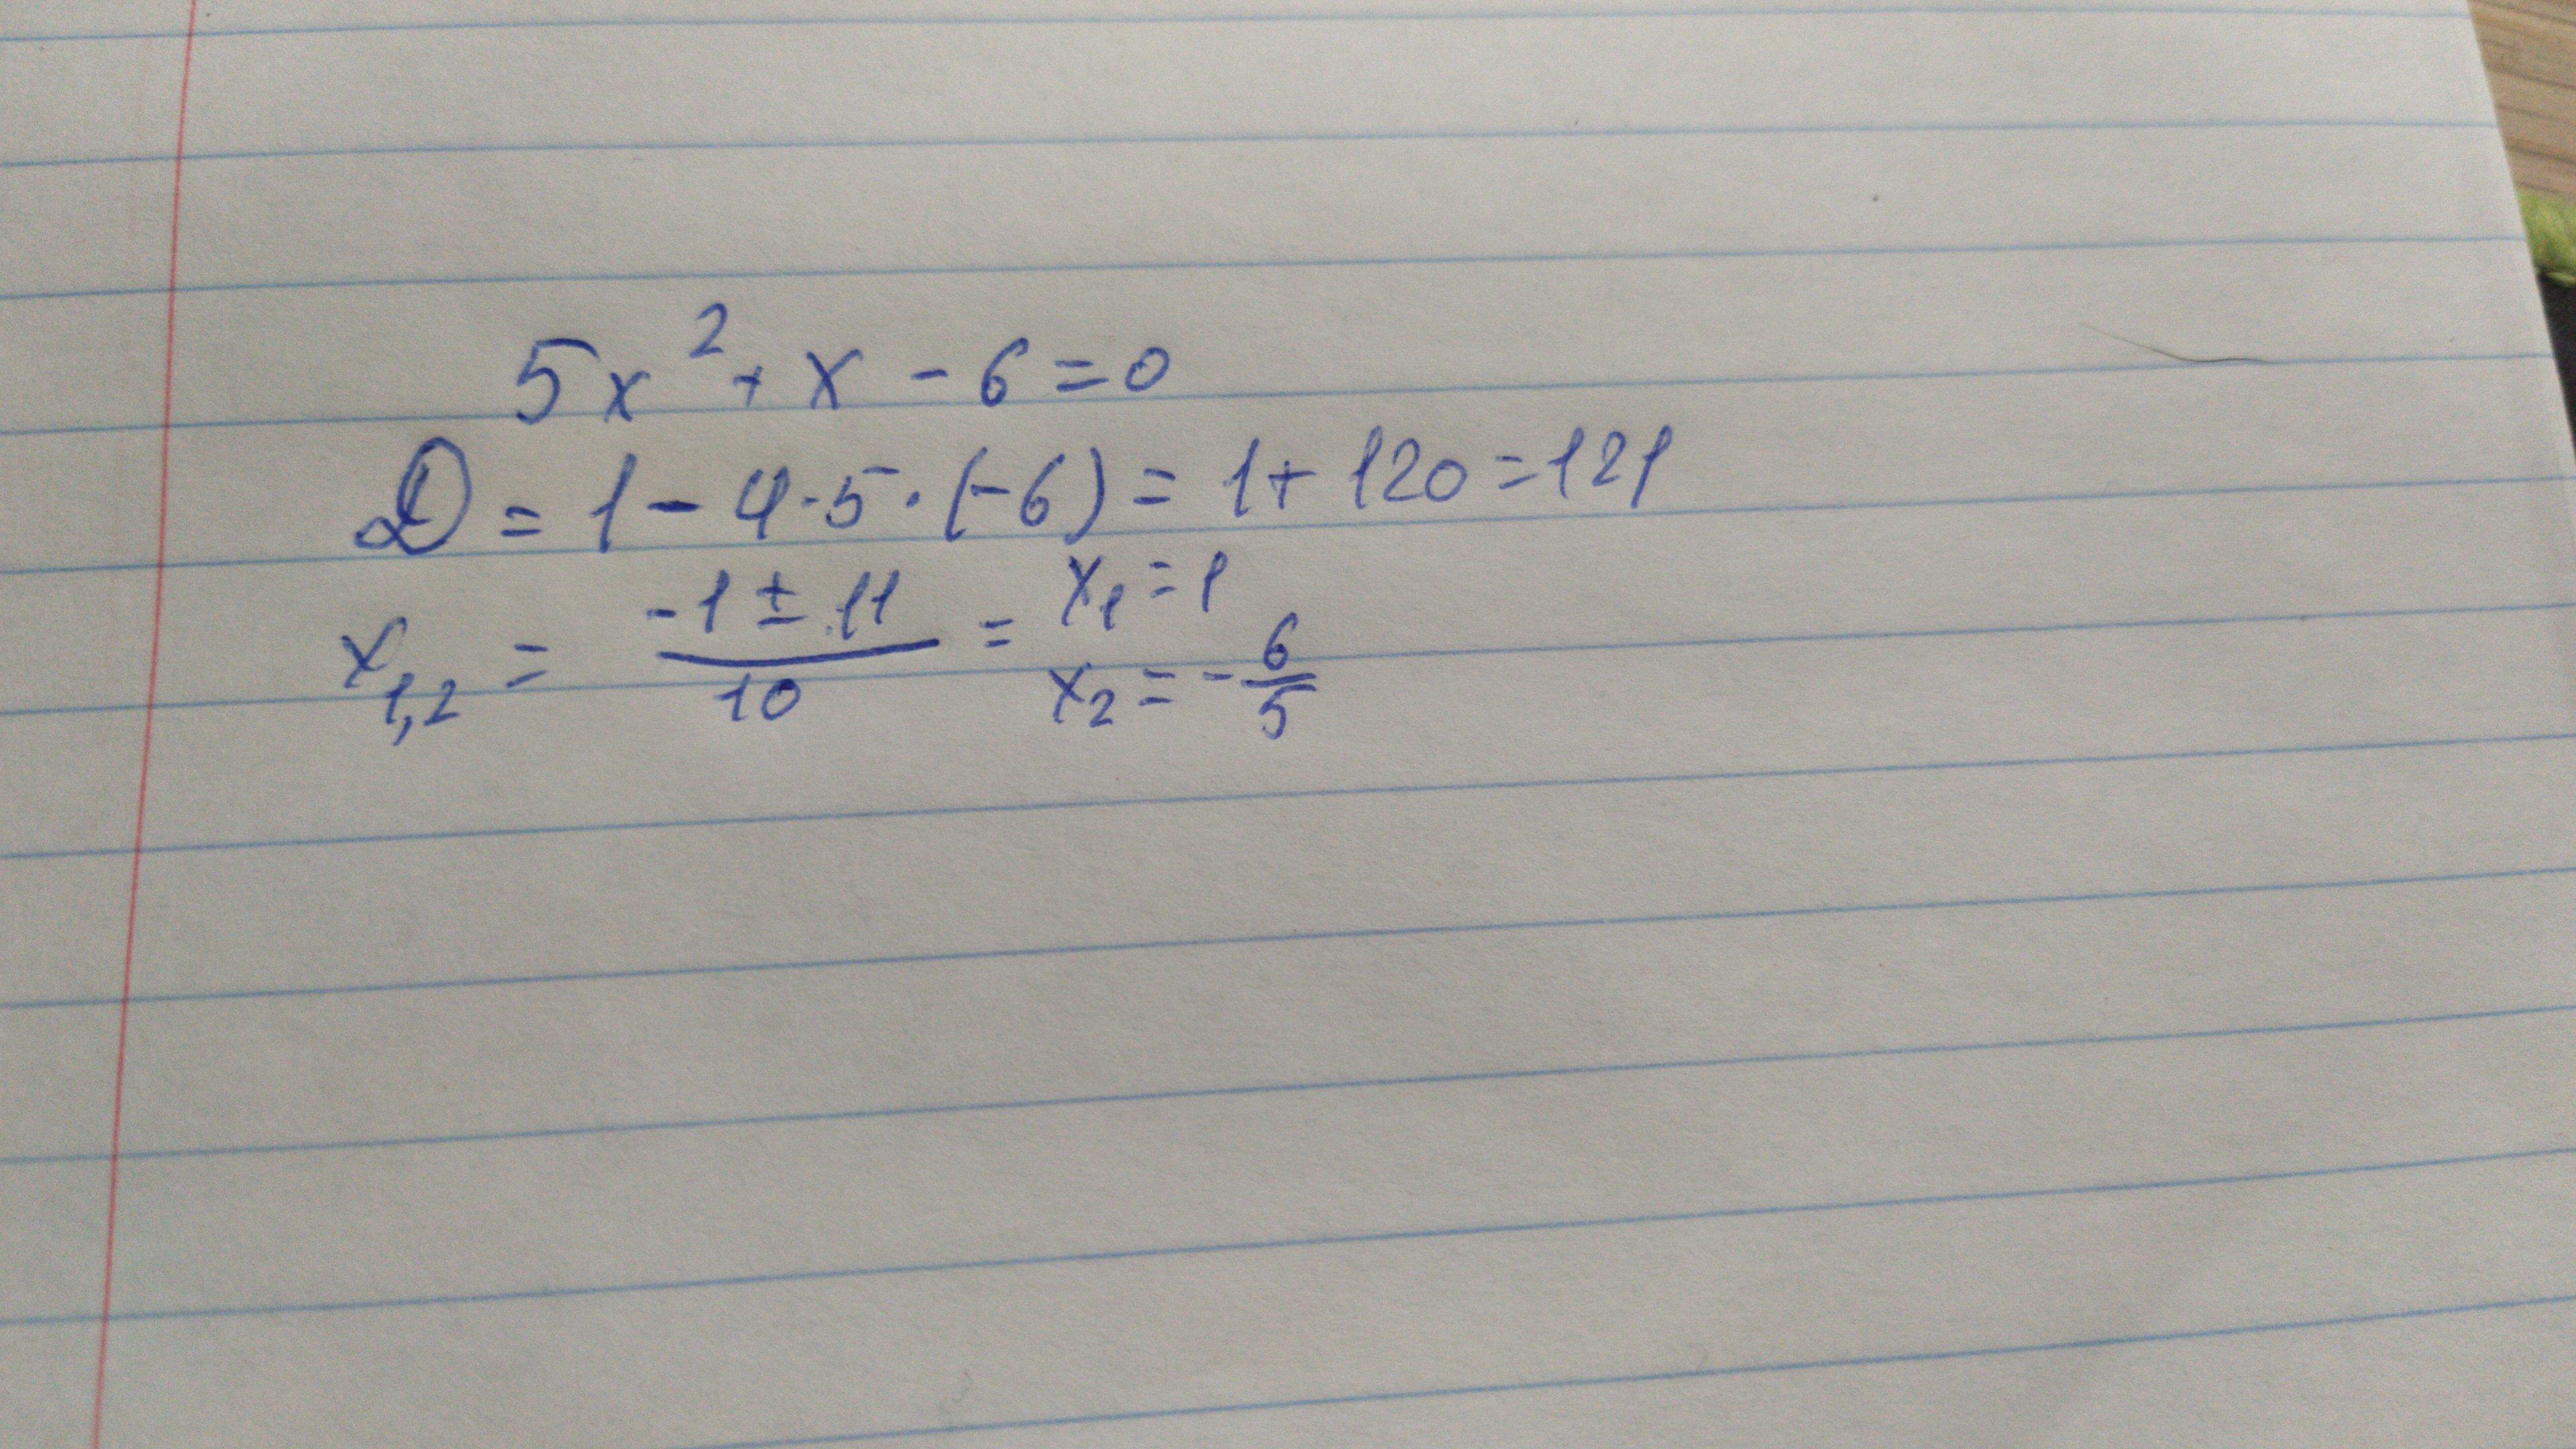 5x² + x - 6 = 0
D = 1 - 4·5·(-6) = 1 + 120 = 121
x₁,₂ = (-1 ± 11)/10 = x₁ = 1
x₂ = -6/5